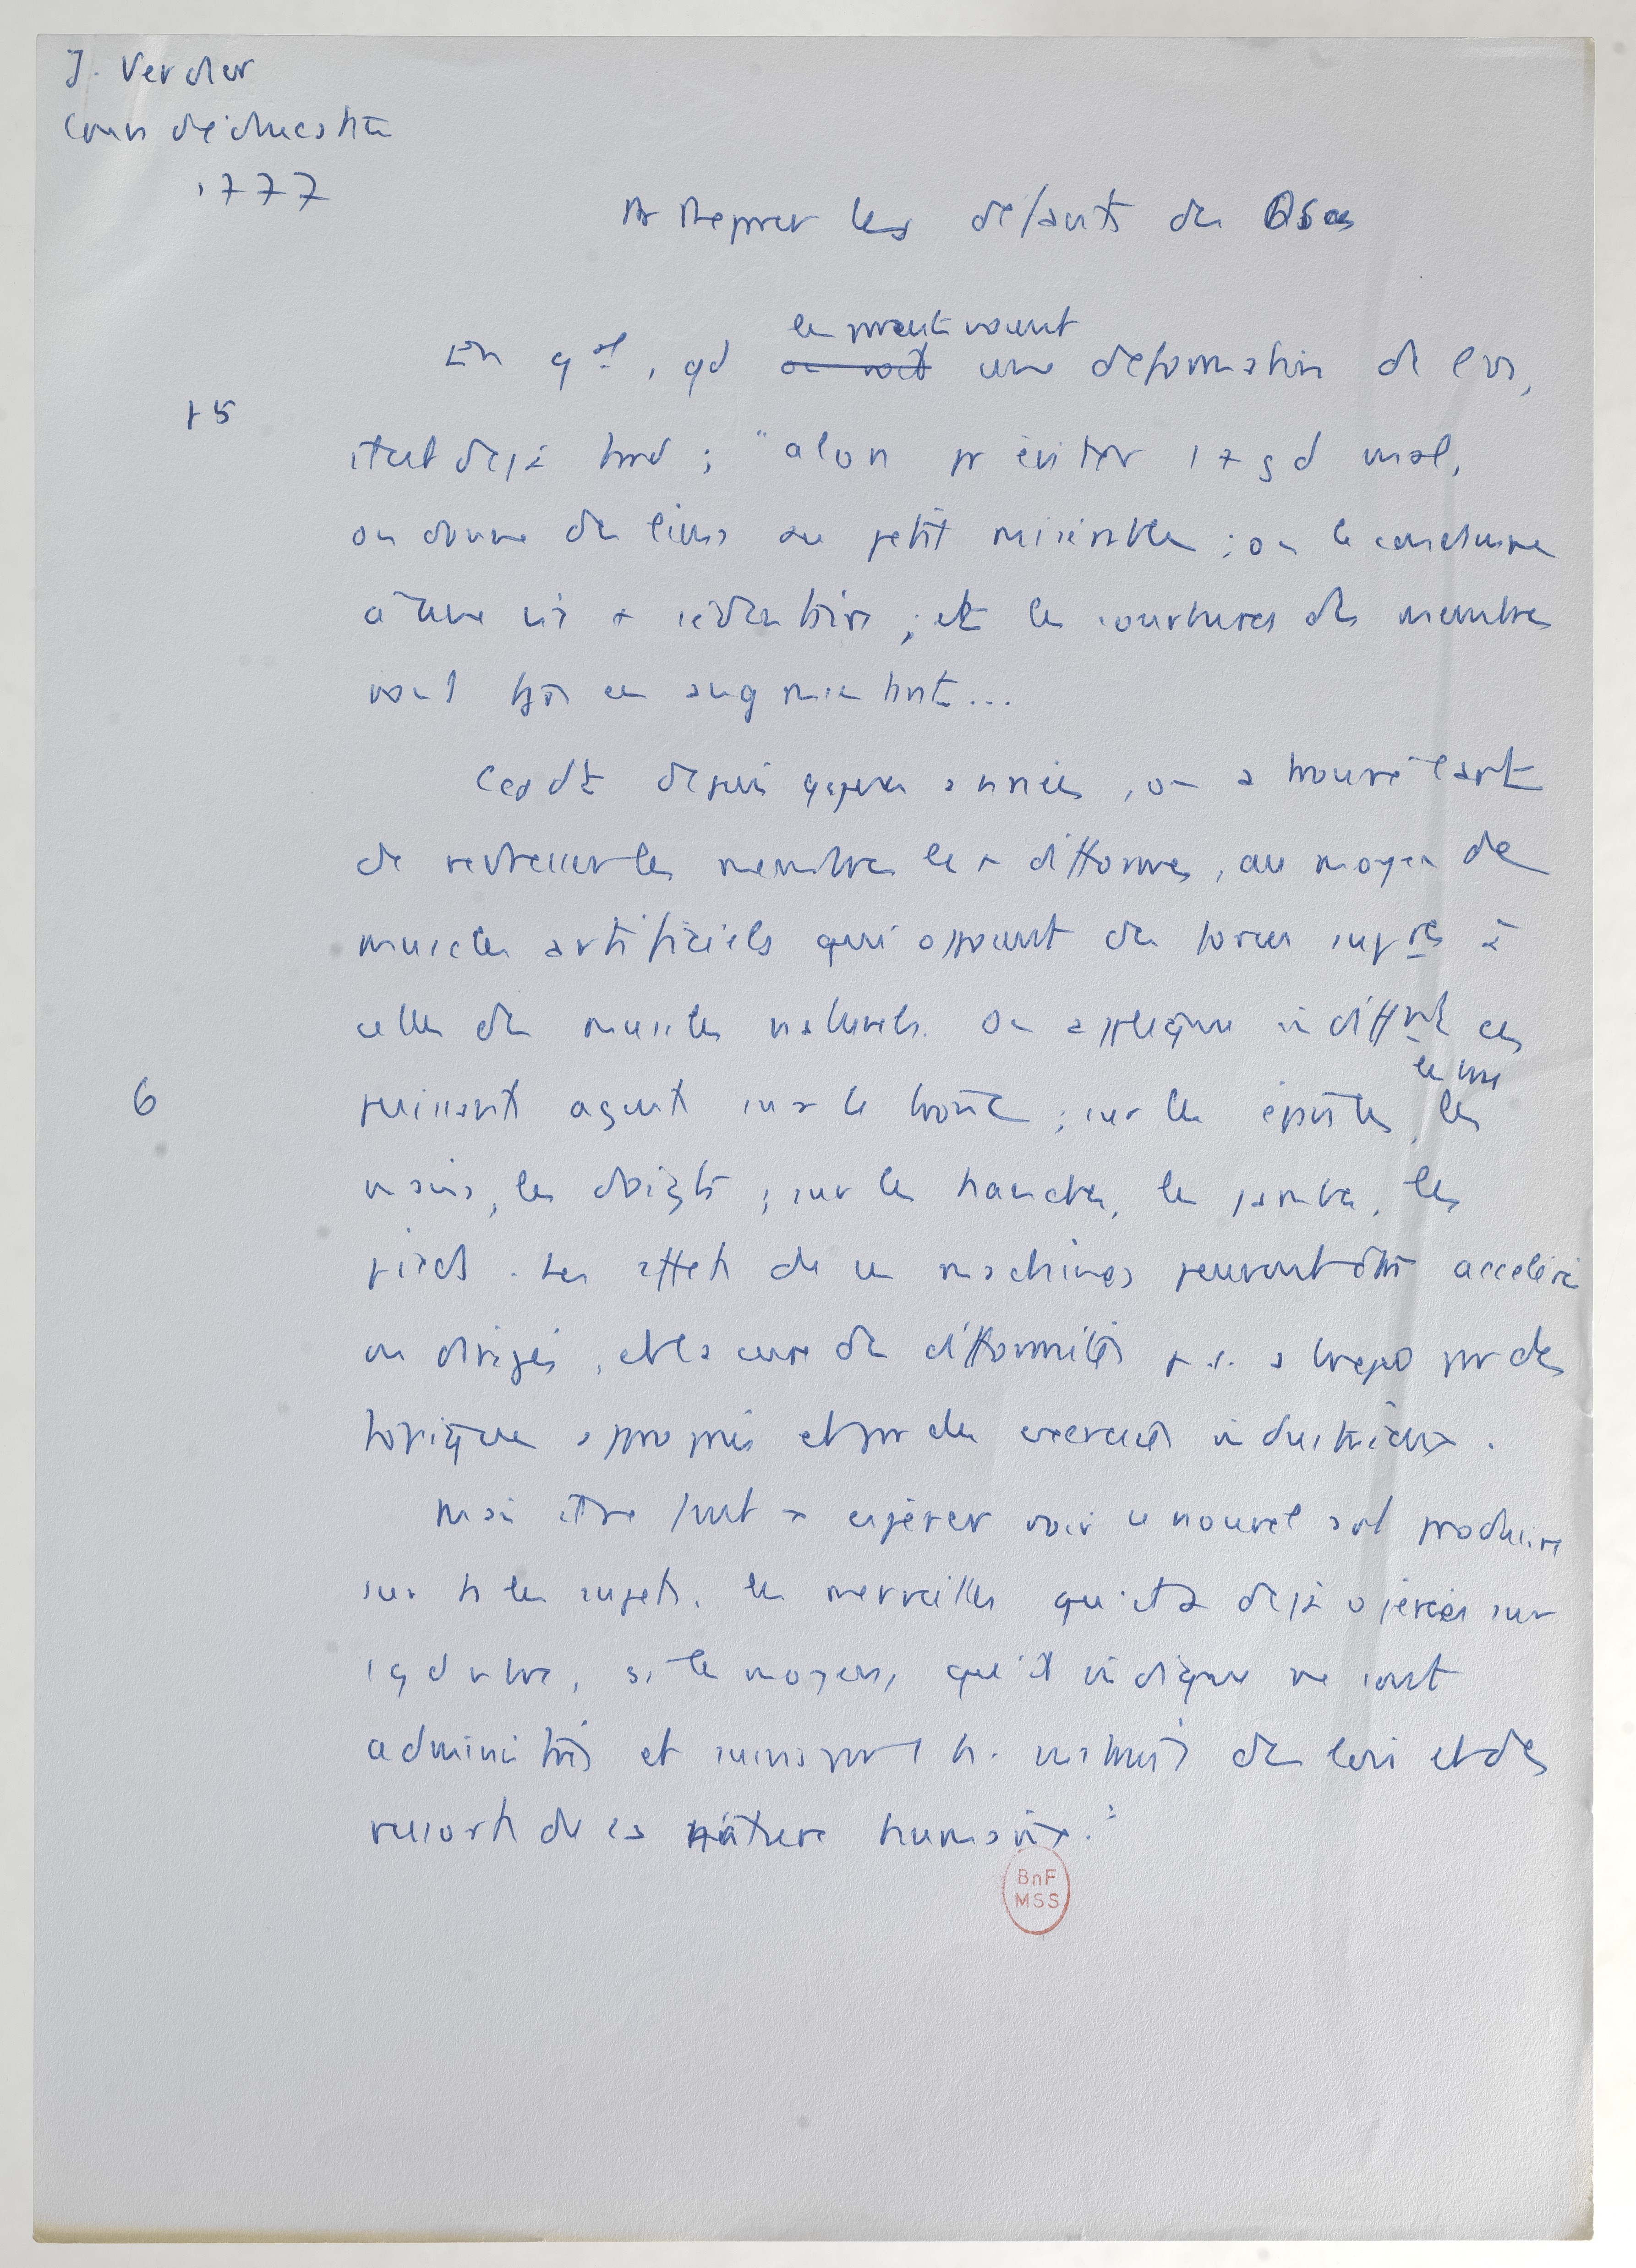 J. Verdier
Cours d'éducation
1777
les défauts des Os
les parents voient
En gal, qd on voit une déformation de l'os,
15
il est déjà tard ; "alors pr éviter 1 + gd mal,
on donne des liens au petit misérable ; on le condamne
à une vie + sédentaire ; et les courbures des membres
vont tjrs en augmentant...
Cepdt depuis qques années, on a trouvé l'art
de redresser les membres les + difformes, au moyen de
muscles artificiels qui opposent des forces supres à
celles des muscles naturels. On applique indifft ces
le cou
6
puissants agents sur le tronc ; sur les épaules, les
mains, les doigts ; sur les hanches, les jambes, les
pieds. Les effets de ces machines peuvent être accélérés
ou dirigés, et la cure des difformités par des
topiques appropriés et par des exercices industrieux.
Mais il ne faut pas espérer voir ce nouvel art produire
sur ts les sujets, les merveilles qu'il a déjà opérées sur
1 gd nbre, si les moyens, qu'il indique ne sont
administrés et suivis par 1 h. instruit des lois et des
ressorts de la nature humaine."
BnF
MSS